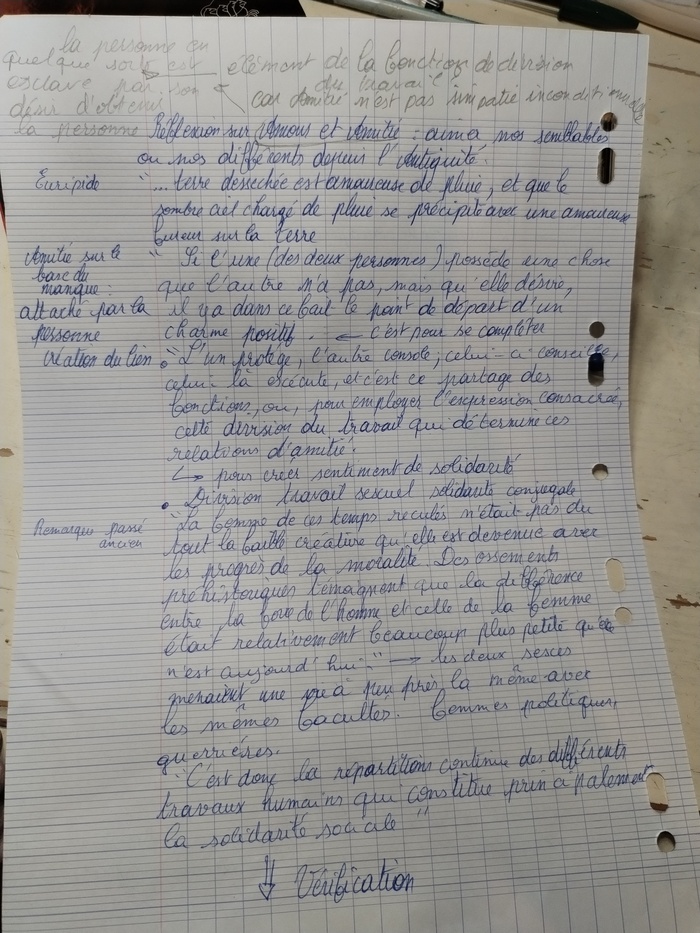 la personne en
quelque sorte est élément de la fonction de division
esclave par son du travail
désir d'obtenir car Amitié n'est pas simpatie inconditionnelle
la personne
Réflexion sur Amour et Amitié : aimer nos semblables
ou nos différents depuis l'Antiquité.
Euripide "... terre dessechée est amoureuse de pluie, et que le
sombre ciel chargé de pluie se précipite avec une amoureuse
fureur sur la terre
Amitié sur le " Si l'une (des deux personnes) possède une chose
base du
manque : que l'autre n'a pas, mais qu'elle désire,
attaché par la il y a dans ce fait le point de départ d'un
personne charme positif. ← c'est pour se compléter
création du lien • "L'un protège, l'autre console, celui-ci conseille,
celui-là exécute, et c'est ce partage des
fonctions, ou, pour employer l'expression consacrée,
cette division du travail qui détermine ces
relations d'amitié.
↳ pour créer sentiment de solidarité
• Division travail sexuel solidarité conjugale
Remarque passé "La femme de ces temps reculés n'était pas du
ancien tout la faible créature qu'elle est devenue avec
les progrès de la moralité. Des ossements
préhistoriques témoignent que la différence
entre la force de l'homme et celle de la femme
était relativement beaucoup plus petite qu'elle
n'est aujourd'hui " → les deux sexes
menaient une vie à peu près la même avec
les mêmes facultés. femmes politiques,
guerrières.
"C'est donc la répartitions continue des différents
travaux humains qui constitue principalement
la solidarité sociale "
⇓ Vérification